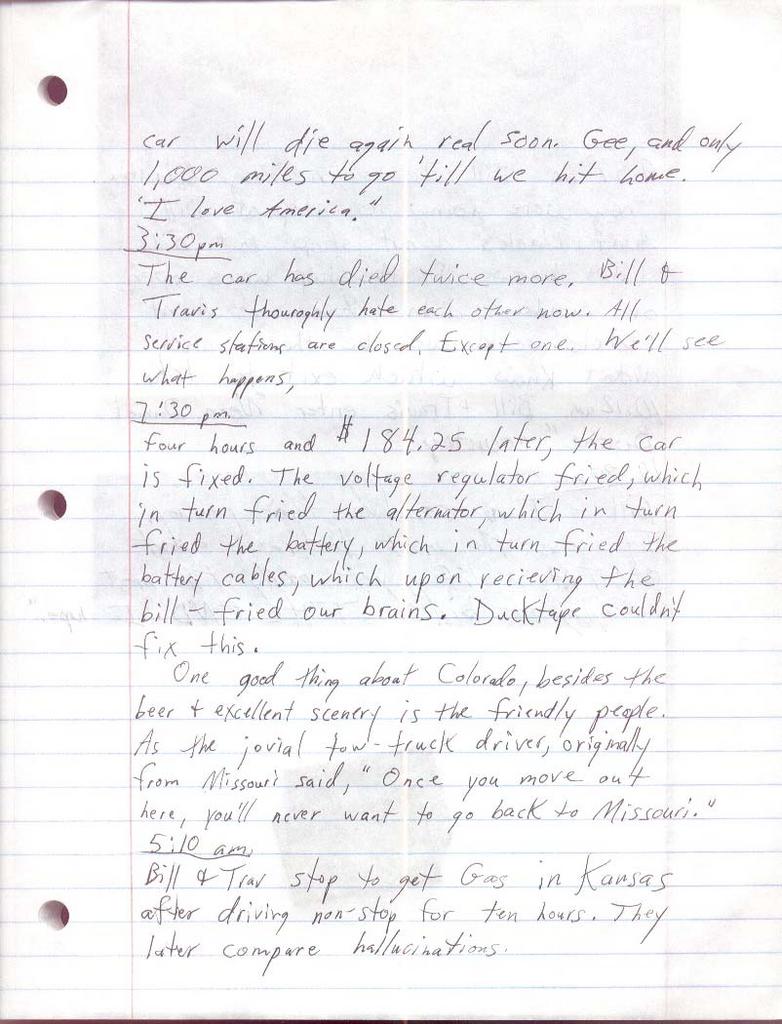 car will die again real soon. Gee, and only
1,000 miles to go 'till we hit home.
"I love America."
3:30 pm
The car has died twice more. Bill &
Travis thouroghly hate each other now. All
service stations are closed. Except one. We'll see
what happens,
7:30 pm.
Four hours and $184.25 later, the car
is fixed. The voltage regulator fried, which
in turn fried the alternator, which in turn
fried the battery, which in turn fried the
battery cables, which upon recieving the
bill - fried our brains. Ducktape couldn't
fix this.
One good thing about Colorado, besides the
beer & excellent scenery is the friendly people.
As the jovial tow-truck driver, originally
from Missouri said, "Once you move out
here, you'll never want to go back to Missouri."
5:10 am,
Bill & Trav stop to get Gas in Kansas
after driving non-stop for ten hours. They
later compare hallucinations.